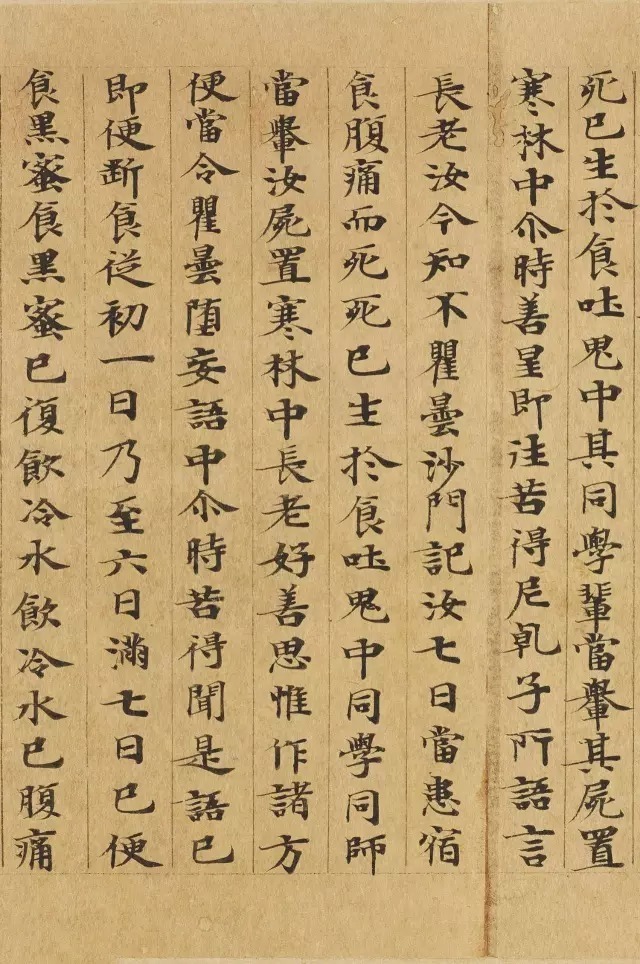 死已生於食吐鬼中其同學輩當轝其屍置
寒林中尒時善星即往苦得尼乹子所語言
長老汝今知不瞿曇沙門記汝七日當患宿
食腹痛而死死已生於食吐鬼中同學同師
當轝汝屍置寒林中長老好善思惟作諸方
便當令瞿曇堕妄語中尒時苦得聞是語已
即便断食從初一日乃至六日滿七日已便
食黑蜜食黑蜜已復飲冷水飲冷水已腹痛